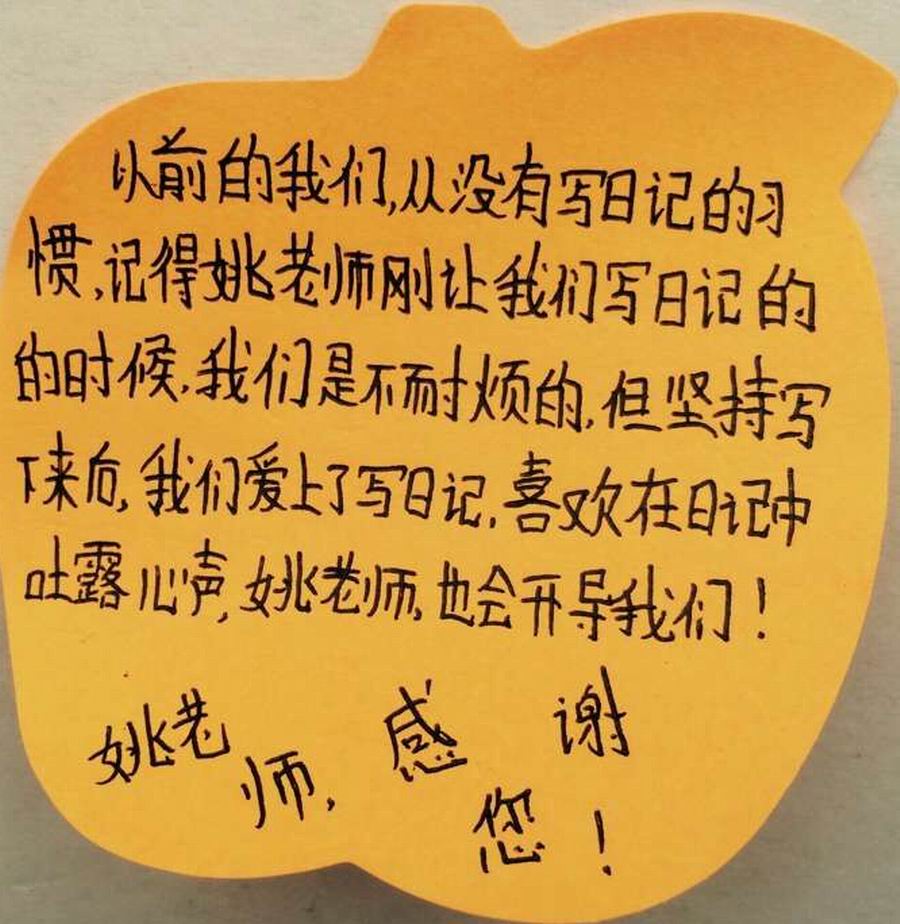 以前的我们,从没有写日记的习
惯,记得姚老师刚让我们写日记的
的时候,我们是不耐烦的,但坚持写
下来后,我们爱上了写日记,喜欢在日记中
吐露心声,姚老师,也会开导我们!
姚老师,感谢
您!